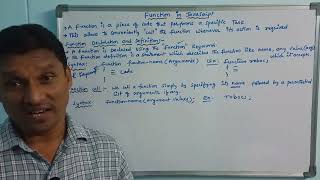 Function in Javascript
A function is a piece of code that performs a specific Task
This allows to conveniently call the function whenever its action is required
Function Declaration and Definition:-
A function is declared using the function keyword
the function definition is a statement which describes the function like name, any value
Syntax: function function-name(arguments) Ex: function
Code
Function call:- we call a function simply by specifying its name followed by a parenthesis
list of arguments if any.
Syntax: function-name(argument values); Ex: